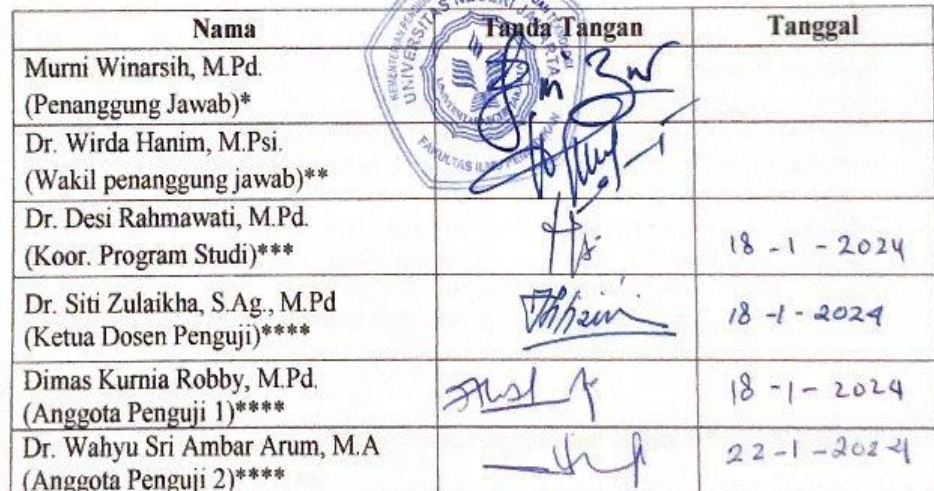 Nama Tanda Tangan Tanggal
Murni Winarsih, M.Pd.
(Penanggung Jawab)*
Dr. Wirda Hanim, M.Psi.
(Wakil penanggung jawab)**
Dr. Desi Rahmawati, M.Pd.
(Koor. Program Studi)*** 18 - 1 - 2024
Dr. Siti Zulaikha, S.Ag., M.Pd
(Ketua Dosen Penguji)**** 18 -1 - 2024
Dimas Kurnia Robby, M.Pd.
(Anggota Penguji 1)**** 18 -1 - 2024
Dr. Wahyu Sri Ambar Arum, M.A
(Anggota Penguji 2)**** 22 -1 -2024
UNIVERSITAS NEGERI JAKARTA
FAKULTAS ILMU